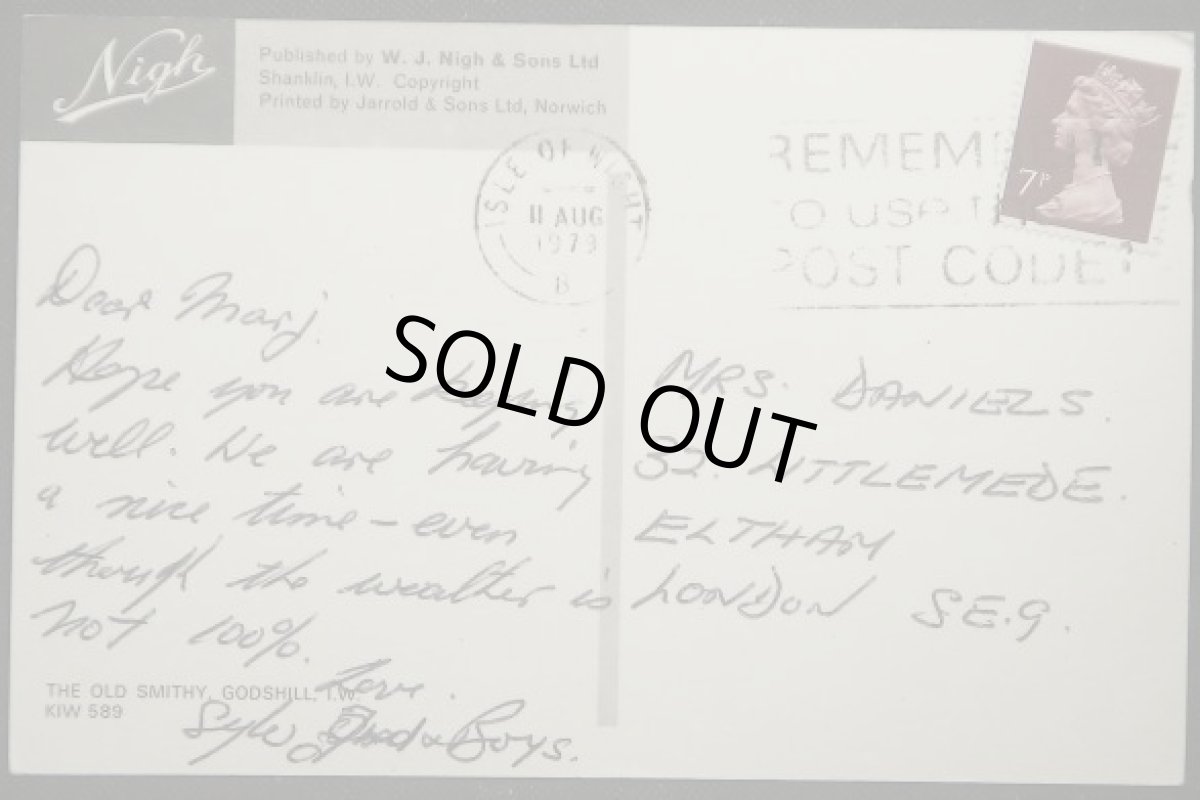 Nigh
Published by W. J. Nigh & Sons Ltd
Shanklin, I.W. Copyright
Printed by Jarrold & Sons Ltd, Norwich
ISLE OF WIGHT
11 AUG
1979
B
REMEM
TO USE
POST CODE
7P
Dear Marj.
Hope you are keeping
well. We are having
a nice time - even
though the weather is
not 100%.
Love.
& Boys.
MRS. DANIELS.
32. LITTLEMEDE.
ELTHAM
LONDON S.E.9.
THE OLD SMITHY, GODSHILL, I.W.
KIW 589
SOLD OUT